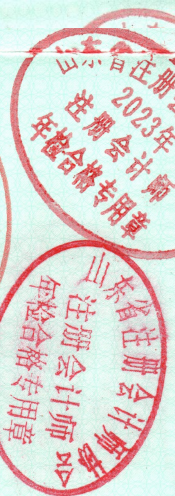 山东省注册会
2023年
注册会计师
年检合格专用章
山东省注册会计师协会
注册会计师
年检合格专用章